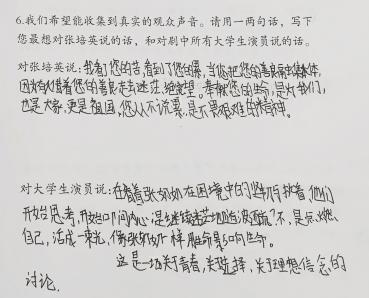 6.我们希望能收集到真实的观众声音。请用一两句话，写下
您最想对张培英说的话，和对剧中所有大学生演员说的话。
对张培英说：我看了您的苦，看到了您的累，当您把您的善良融出集体，
因为有人借着您的善良走去迷茫、绝望。奉献您的生命，是对我们，
也是大家，更是祖国，您从不说累，是不畏艰难的精神。
对大学生演员说：在看着张奶奶在困境中的坚韧执着，他们
开始思考，开始叩问内心：是继续迷茫地随波逐流？不，是点燃
自己，活成一束光，像张奶奶一样用生命影响生命。
这是一场关于青春，关于选择，关于理想信念的
讨论.